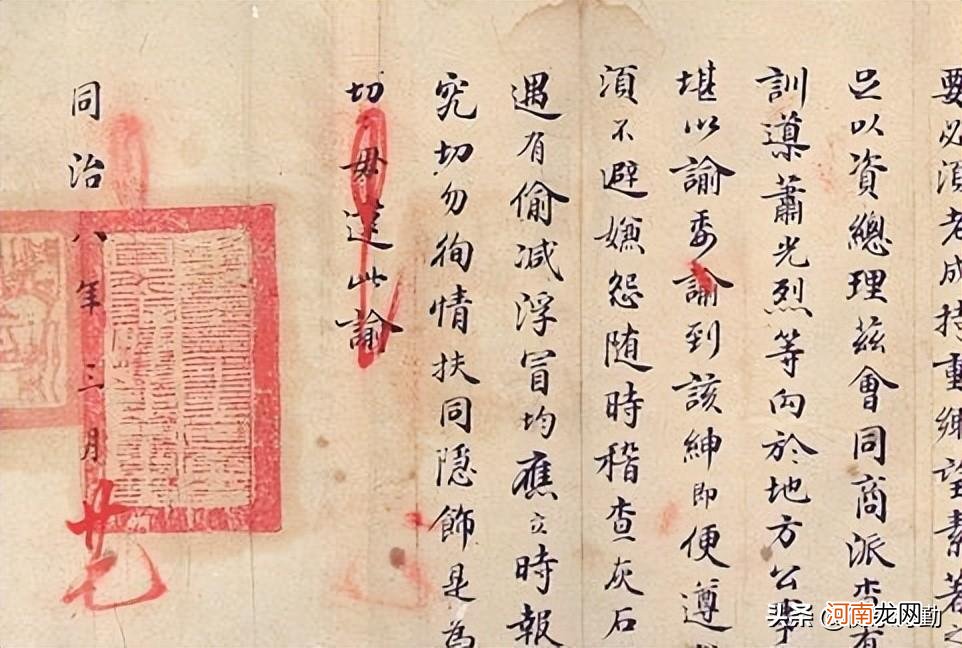 要必須老成持重練望素著之
足以資總理茲會同商派查有
訓導蕭光烈等向於地方公事
堪以諭委諭到該紳即便遵
須不避嫌怨随時稽查灰石
遇有偷减浮冒均應立時報
究切勿徇情扶同隱飾是為
切毋違此諭
同治八年三月廿七
头条
河南龙网
勤